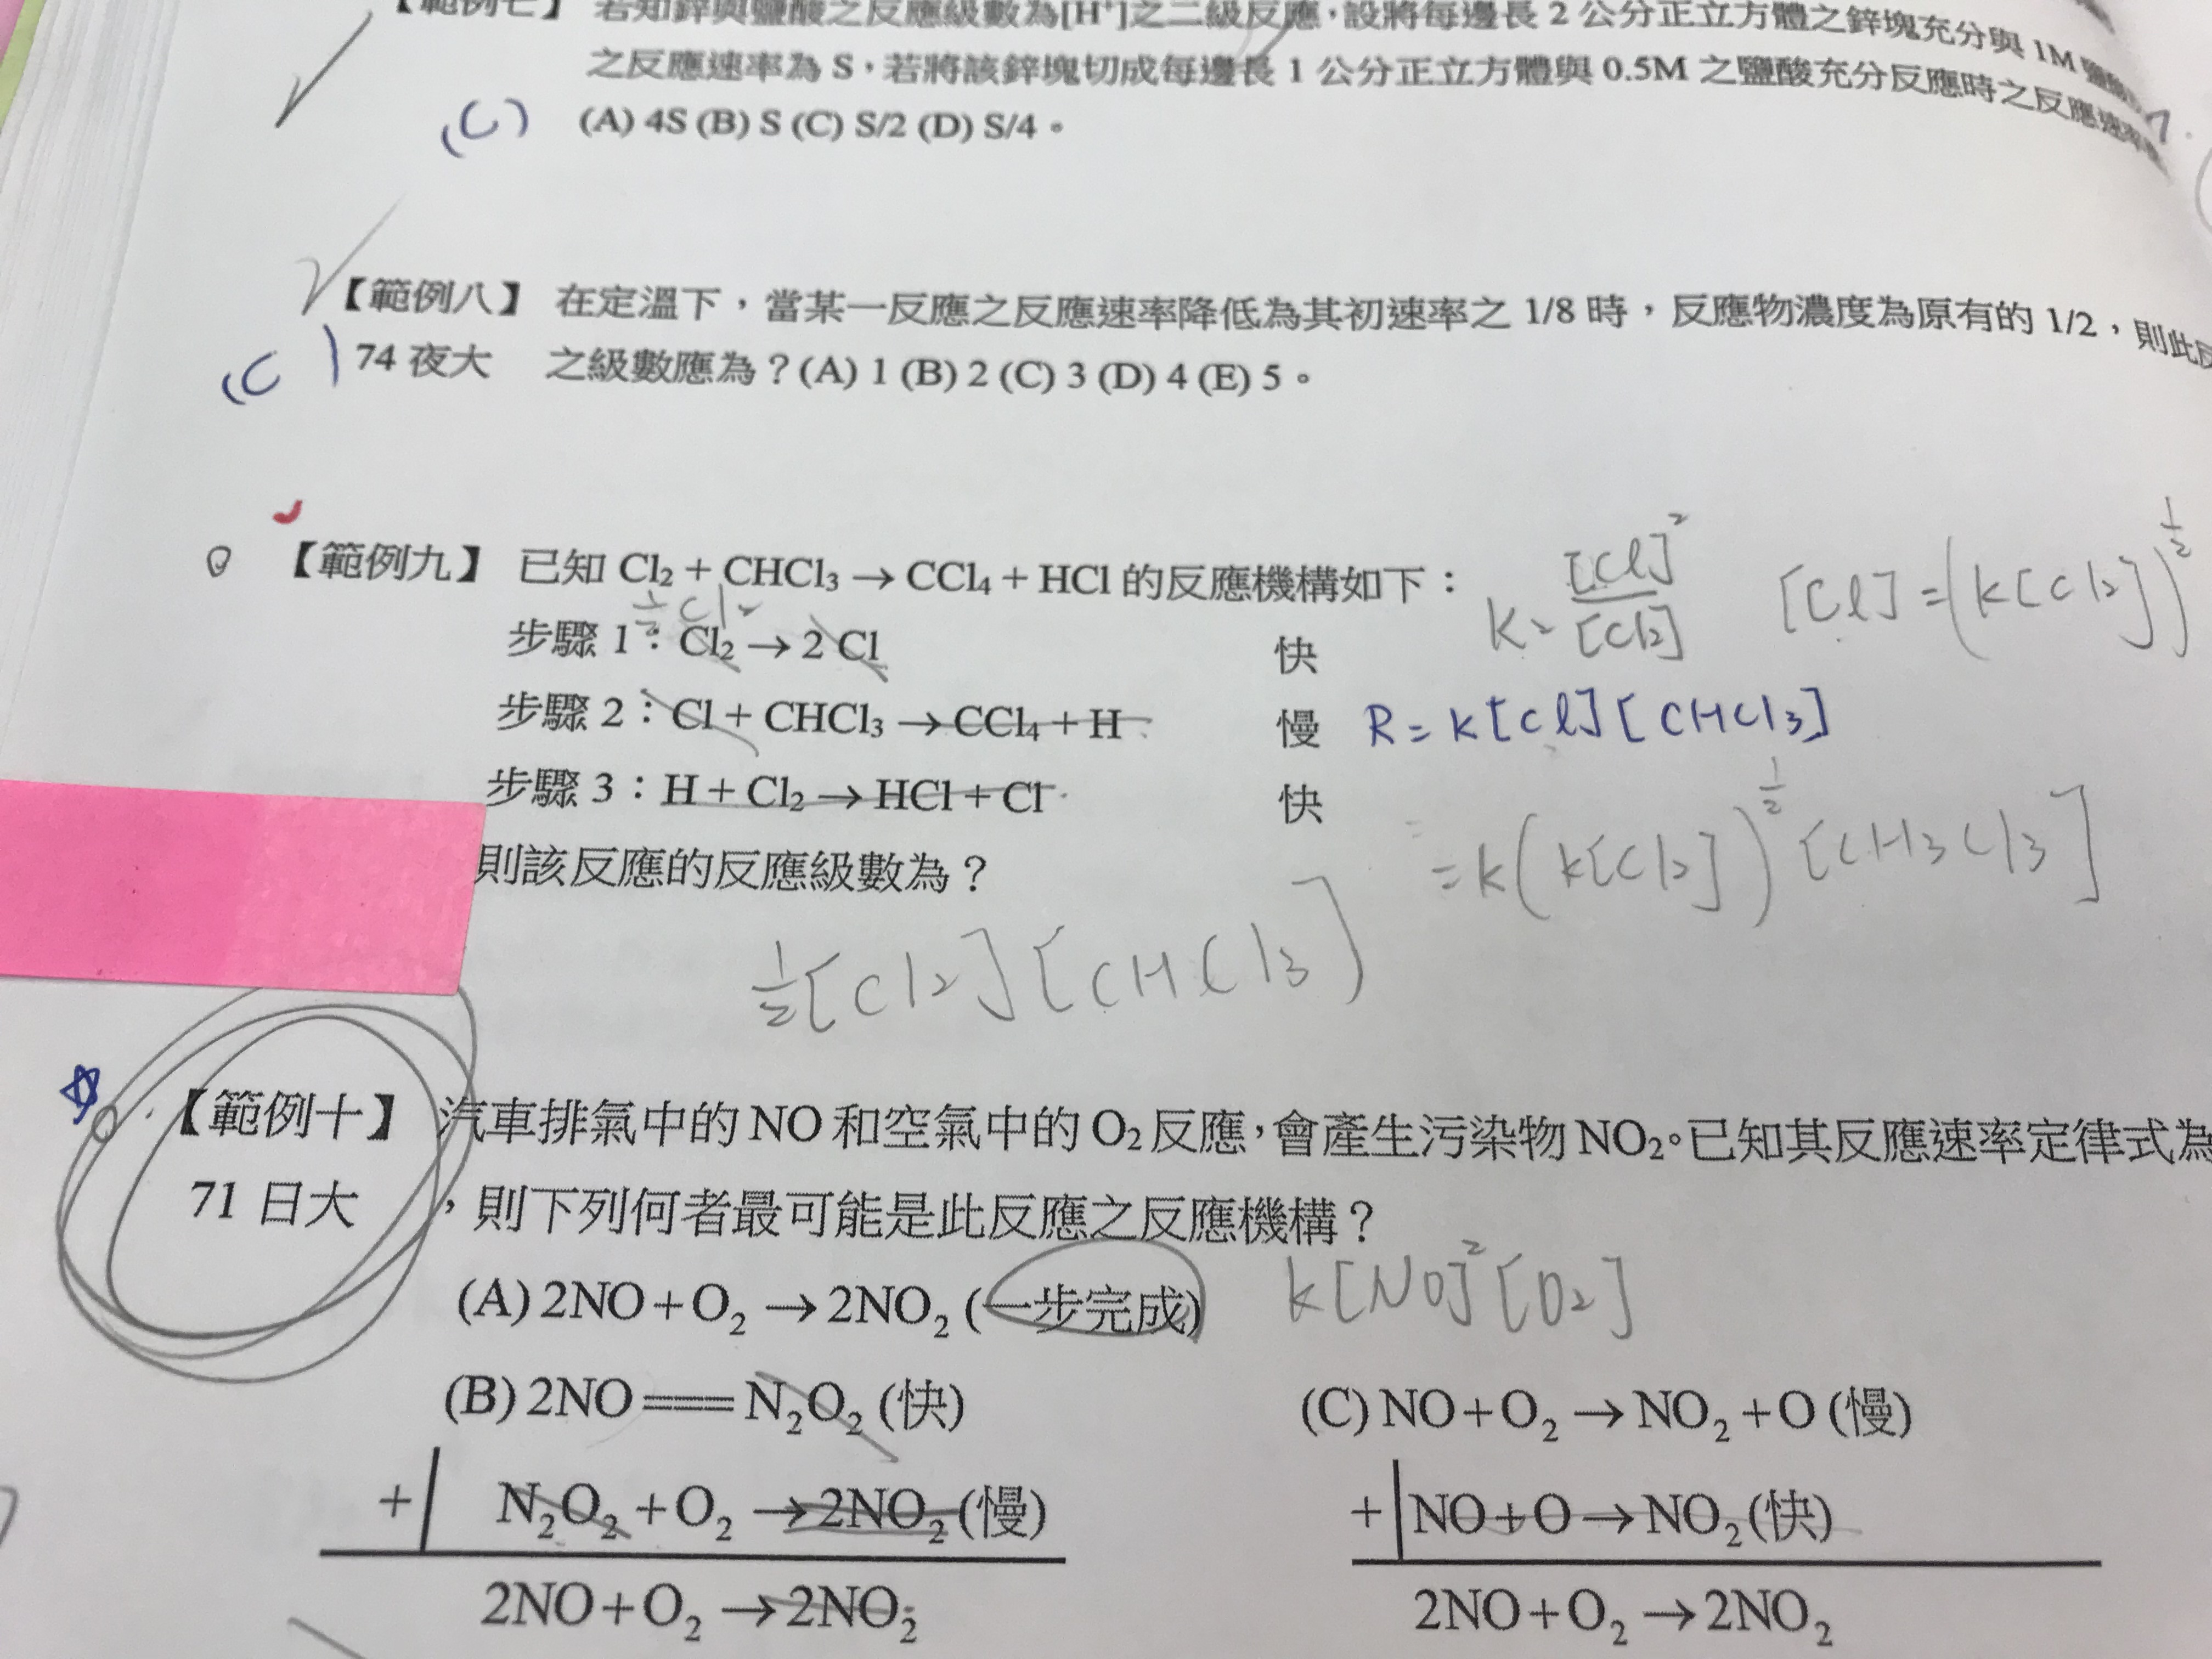 【範例七】 若知鋅與鹽酸之反應級數為[H⁺]之二級反應，設將每邊長 2 公分正立方體之鋅塊充分與 1M 鹽酸
之反應速率為 S，若將該鋅塊切成每邊長 1 公分正立方體與 0.5M 之鹽酸充分反應時之反應速率
(C) (A) 4S (B) S (C) S/2 (D) S/4。
【範例八】 在定溫下，當某一反應之反應速率降低為其初速率之 1/8 時，反應物濃度為原有的 1/2，則此反
(C) 74 夜大 之級數應為？(A) 1 (B) 2 (C) 3 (D) 4 (E) 5。
【範例九】 已知 Cl₂ + CHCl₃ → CCl₄ + HCl 的反應機構如下：
K = [Cl]² / [Cl₂] [Cl] = (K[Cl₂])^½
½Cl₂
步驟 1：Cl₂ → 2 Cl 快
步驟 2：Cl + CHCl₃ → CCl₄ + H 慢 R = k[Cl][CHCl₃]
步驟 3：H + Cl₂ → HCl + Cl 快
= k(K[Cl₂])^½[CH3Cl3]
則該反應的反應級數為？
½[Cl₂][CHCl₃]
【範例十】 汽車排氣中的 NO 和空氣中的 O₂ 反應，會產生污染物 NO₂。已知其反應速率定律式為
71 日大 ，則下列何者最可能是此反應之反應機構？
(A) 2NO + O₂ → 2NO₂ (一步完成) k[NO]²[O₂]
(B) 2NO ══ N₂O₂ (快) (C) NO + O₂ → NO₂ + O (慢)
+ N₂O₂ + O₂ → 2NO₂ (慢) + NO + O → NO₂ (快)
2NO + O₂ → 2NO₂ 2NO + O₂ → 2NO₂